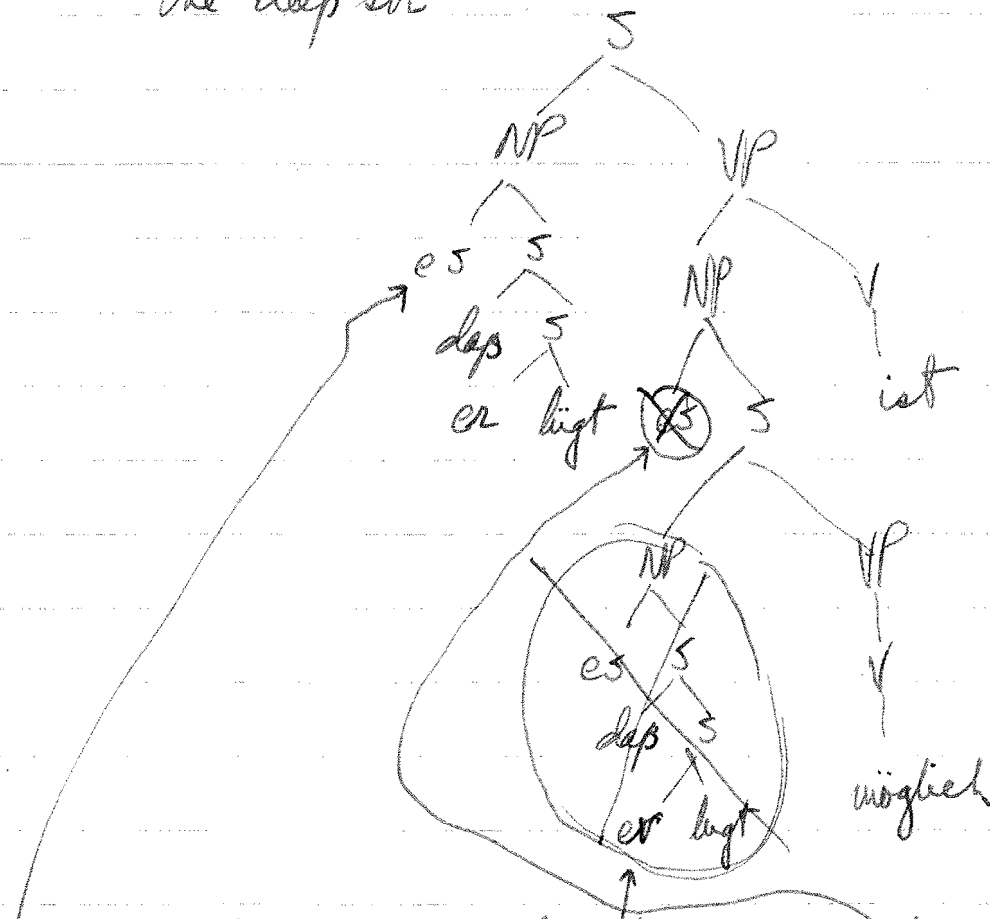 the deep str
S
NP VP
es S NP V
daß S ist
er lügt es S
NP VP
es S V
daß S
er lügt möglich